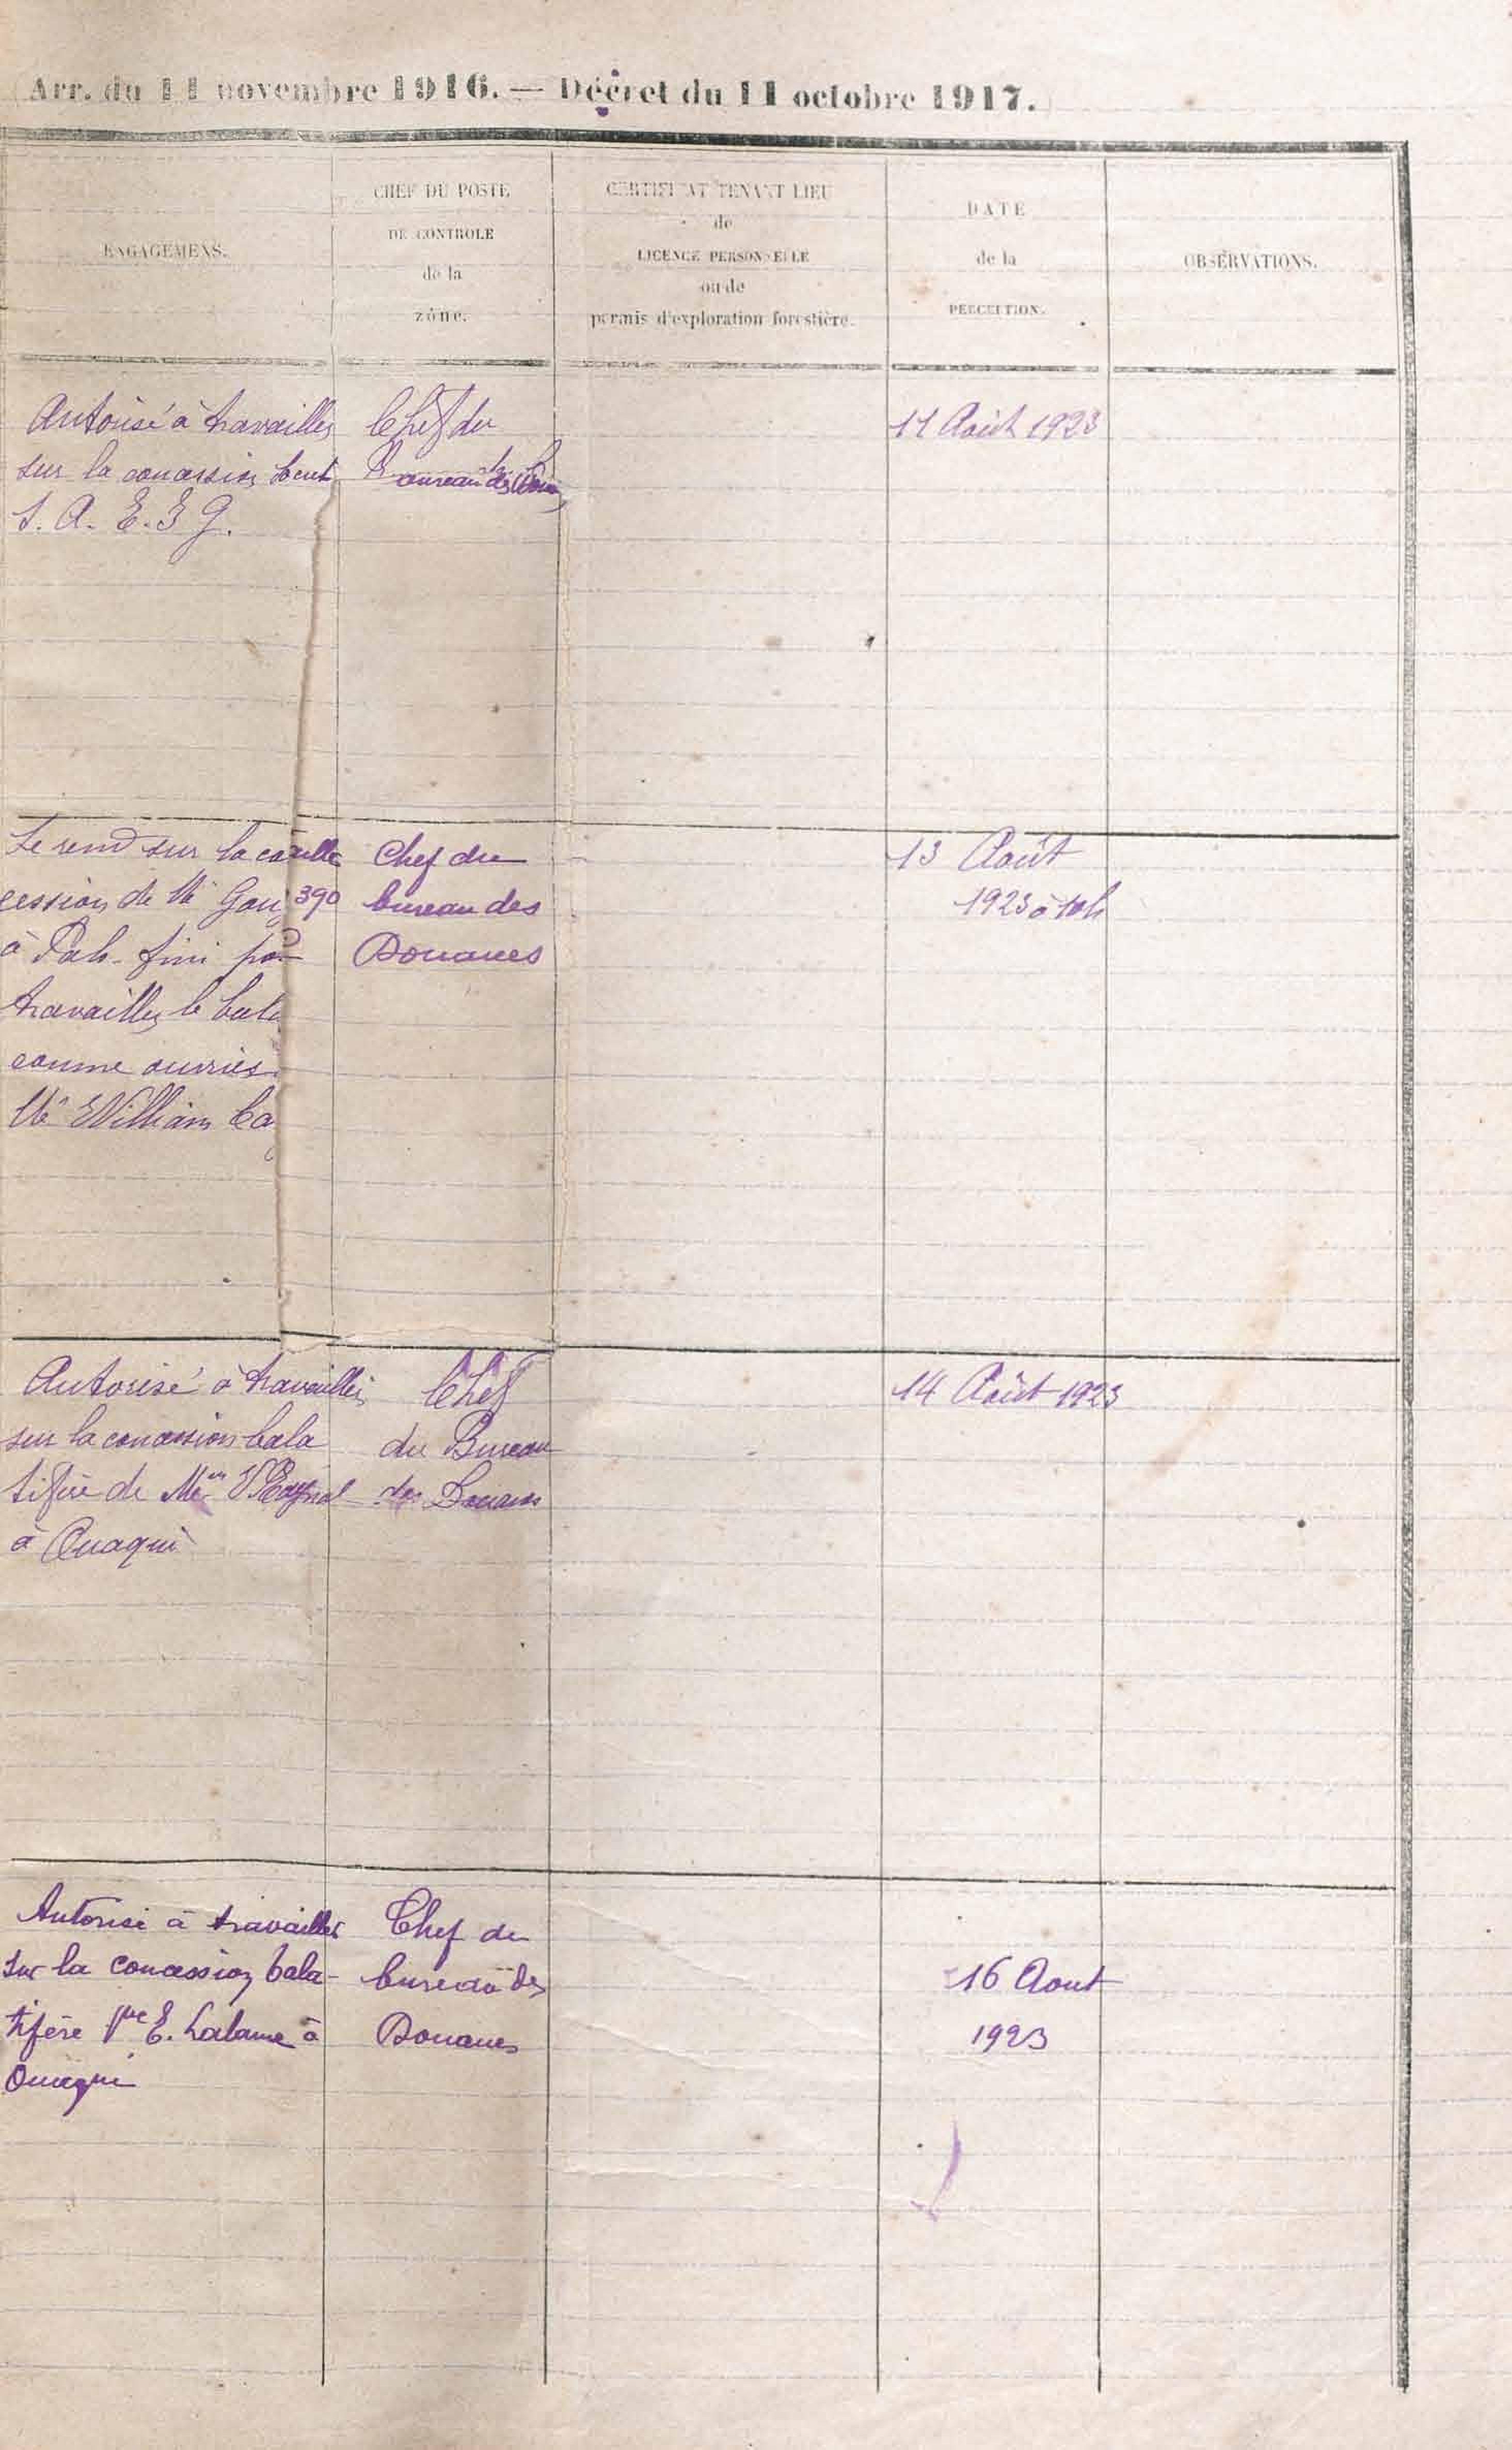 Arr. du 11 novembre 1916. — Décret du 11 octobre 1917.
ENGAGEMENS.
CHEF DU POSTE
DE CONTROLE
de la
zône.
CERTIFICAT TENANT LIEU
de
LICENCE PERSONNELLE
ou de
permis d'exploration forestière.
DATE
de la
PERCEPTION.
OBSERVATIONS.
Autorisé à travailler
sur la concession
S. A. E. G.
Chef du
Bureau des
11 Août 1923
Se rend sur la
cession de Mr 390
à Pah-fini
travailler le bala
comme ouvrier
Mr William
Chef du
bureau des
Douanes
13 Août
1923 à 10h
Autorisé à travailler
sur la concession bala
tifère de
à Ouaqui
Chef
du Bureau
des Douanes
14 Août 1923
Autorisé à travailler
sur la concession bala-
tifère Vve E. Lalanne à
Ouaqui
Chef du
bureau des
Douanes
16 Aout
1923